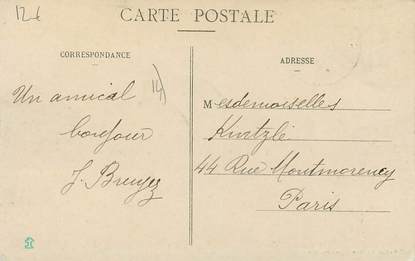 12€
CARTE POSTALE
CORRESPONDANCE
ADRESSE
14)
Un amical
bonjour
J. Bruyez
Mesdemoiselles
Kurtzlé
44 Rue Montmorency
Paris